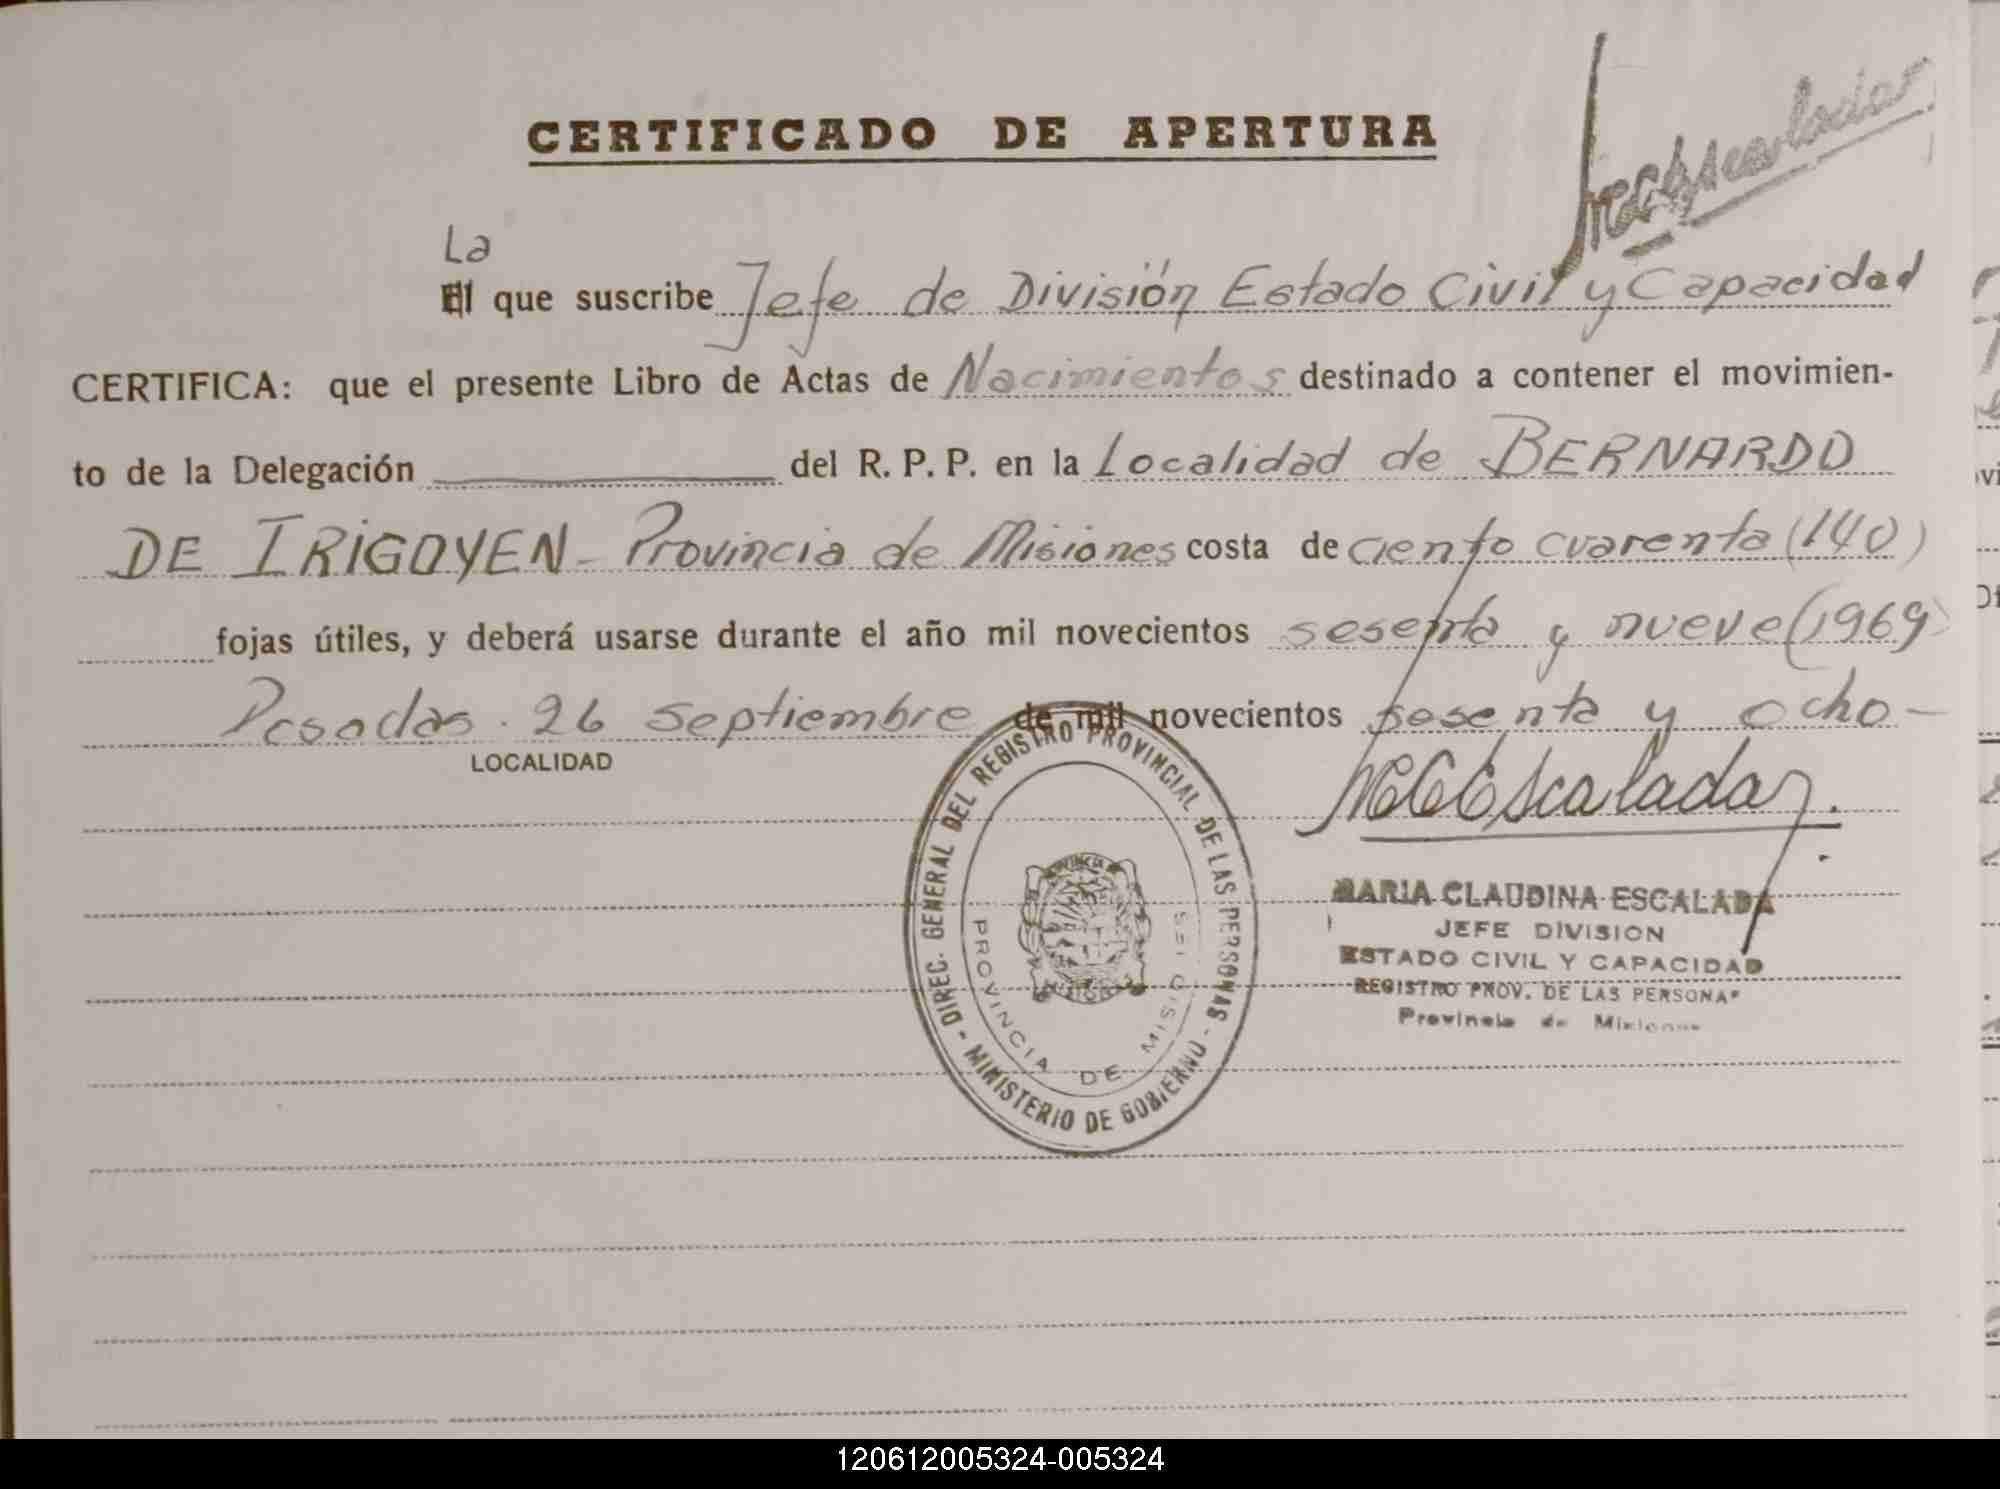 CERTIFICADO DE APERTURA
La
El que suscribe Jefe de División Estado Civil y Capacidad
CERTIFICA: que el presente Libro de Actas de Nacimientos destinado a contener el movimien-
to de la Delegación del R. P. P. en la Localidad de BERNARDO
DE IRIGOYEN - Provincia de Misiones costa de ciento cuarenta (140)
fojas útiles, y deberá usarse durante el año mil novecientos sesenta y nueve (1969)
Posadas. 26 Septiembre de mil novecientos sesenta y ocho -
LOCALIDAD
DIREC. GENERAL DEL REGISTRO PROVINCIAL DE LAS PERSONAS - MINISTERIO DE GOBIERNO -
PROVINCIA DE MISIONES
MCEscalada
MARIA CLAUDINA ESCALADA
JEFE DIVISION
ESTADO CIVIL Y CAPACIDAD
REGISTRO PROV. DE LAS PERSONAS
Provincia de Misiones
120612005324-005324